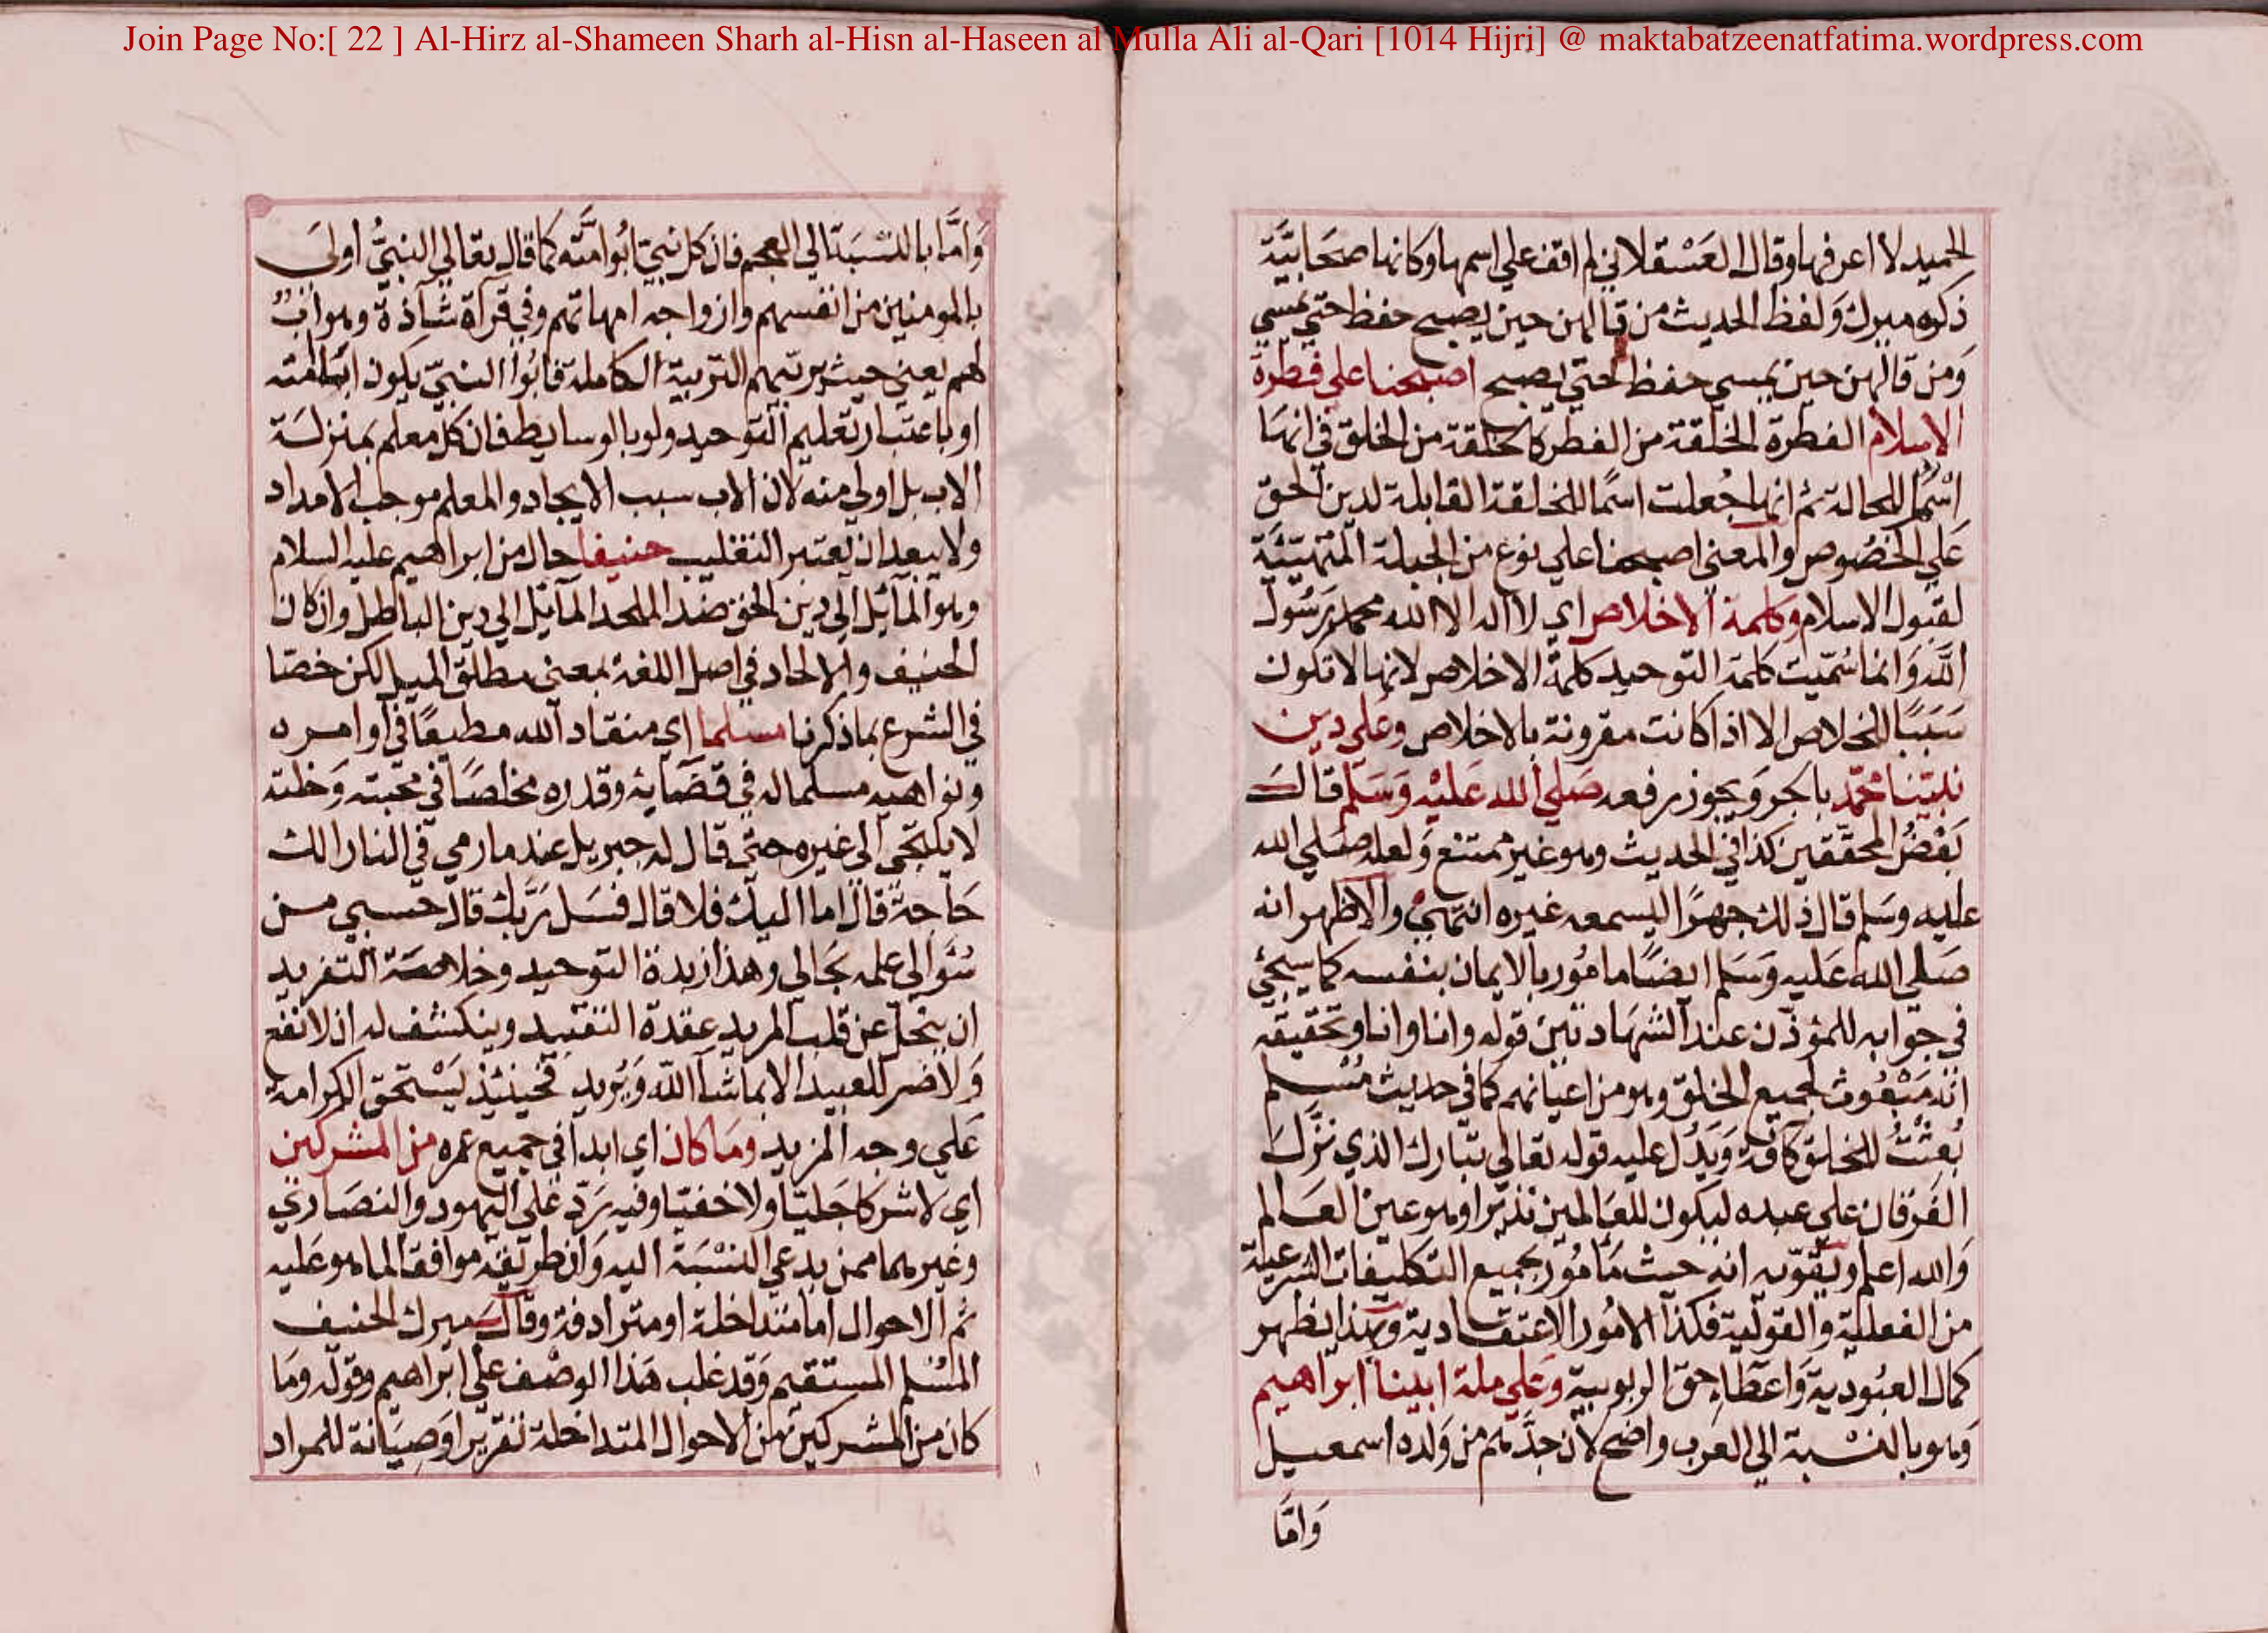 Join Page No:[ 22 ] Al-Hirz al-Shameen Sharh al-Hisn al-Haseen al Mulla Ali al-Qari [1014 Hijri] @ maktabatzeenatfatima.wordpress.com
الحميد لا اعرفها وقال العَسْقلاني لم اقف علي اسمها وكانها صحَابيَّة
ذكره ميرك وَلفظ الحديث من قالهن حين يصبح حفظ حتي يمسي
وَمن قالهن حين يمسي حفظ حتي يصبح اصبحنا علي فطرة
الاسلام الفطرة الخلقة من الفطر كالخلقة من الخلق في انها
اسْمٌ للحالة ثم انها جُعلت اسمًا للخلقة القابلة لدين الحق
عَلي الخصُوص والمعني اصبحنا علي نوع من الجبلة المتهيئة
لقبول الاسلام وكلمة الاخلاص اي لا اله الا الله محمد رسُول
الله وَانما سُمّيت كلمة التوحيد كلمة الاخلاص لانها لا تكون
سَبَبًا للخلاص الا اذا كانت مقرونة بالاخلاص وعَلي دين
نبيّنا محمّد بالجر وَيجوز رفعه صَلي الله عَليْه وَسَلم قالَ
بَعْضُ المحققين كذا في الحديث وهو غير ممتنع وَلعله صَلي الله
عليه وسَلم قال ذلك جهرًا ليسمعه غيره انتهي والاظهر انه
صَلي الله عَليه وَسَلم ايضًا مامُور بالايمان بنفسه كما سيجئ
في جوابه للمؤذن عند الشهادتين قوله وانا وانا وتحقيقه
انه مَبْعُوث لجميع الخلق وهو من اعيانهم كما في حديث مُسْلم
بُعثتُ للخلق كافة وَيَدُل عليه قوله تعالي تبارك الذي نزَّلَ
الفَرقان علي عبده ليكون للعَالمين نذيرا وهو عين العَالم
وَالله اعلم ويقوّيه انه حيث مَأمُور بجميع التكليفات الشرعية
من الفعلية والقولية فكذا الامُور الاعتقادية وبهذا يظهر
كمال العبُودية وَاعطاء حق الربوبية وَعَلي ملة ابينا ابراهيم
وَهو بالنسْبة الي العَرب واضح لان جدّهم من وَلده اسمعيل
وَامَّا
وَامَّا بالنسْبَة الي العجم فان كل نبيّ ابُو امّته كما قال تعَالي النبيُّ اولَي
بالمومنين من انفسهم وازواجه امهاتهم وفي قرآة شآذة وهو ابٌ
لهم يعني حيث يربّيهم التربية الكاملة فابُوا النبيّ يكون
او باعتبار تعليم التوحيد ولو بالوسايط فان كل معلم بمنزلة
الاب بل اولي منه لان الاب سبب الايجاد والمعلم موجب الامداد
ولا يبعد ان يعتبر التغليب حنيفا حال من ابراهيم عليه السلام
وهو المآئل الي دين الحق ضد الملحد المآئل الي دين الباطل وان كان
الحنيف والالحاد في اصل اللغة بمعني مطلق الميل لكن خصّا
في الشرع بما ذكرنا مسلما اي منقادا لله مطيعًا في اوامره
ونواهيه مسلما له في قضَايه وقدره مخلصًا في محبته وَخلته
لا يلتجي الي غيره حتي قال له جبريل عند ما رمي في النار الك
حَاجة قال اما اليك فلا قال فسَل رَبّك قال حسبي من
سُوالي علمه بحَالي وهذا زبدة التوحيد وخلاصَة التفريد
ان ينحل عن قلب المريد عقدة التقييد وينكشف له ان لا نفع
وَلا ضر للعبيد الا بما شآ الله وَيُريد فحينئذ يَسْتحق الكرامة
عَلي وجه المزيد ومَا كان اي ابدا في جميع عمره من المشركين
اي لا شركا جَليّا ولا خفيّا وفيه رَدّ عَلي اليهود والنصَاري
وغيرهما ممن يدعي النسْبَة اليه وَان طريقه موافق لما هو عَليه
ثم الاحوال اما متداخلة او مترادفة وقالَ ميرك الحنيف
المسْلم المستقيم وَقد غلب هَذا الوصْف علي ابْراهيم وقوله ومَا
كان من المشركين من الاحوال المتداخلة تقريرا وَصِيَانة للمراد